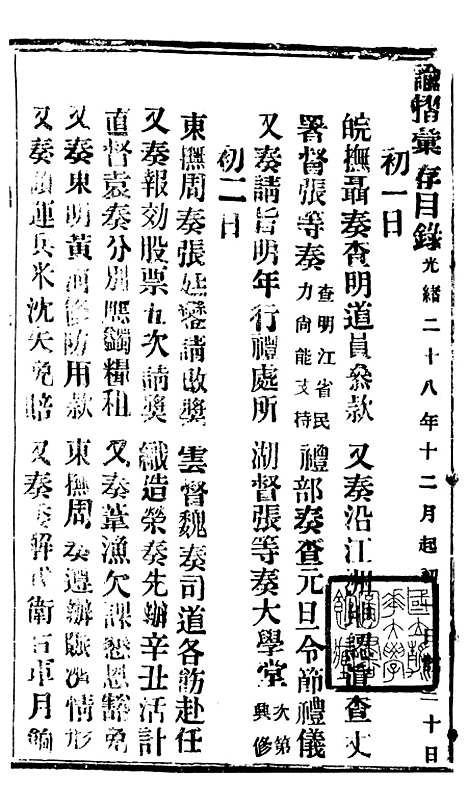 諭摺彙存目錄 光緒二十八年十二月起初一日 二十日
初一日
皖撫聶奏查明道員叅款 又奏沿江洲地認道查丈
署督張等奏查明江省民力尚能支持 禮部奏查元旦令節禮儀
又奏請旨明年行禮處所 湖督張等奏大學堂次第興修
初二日
東撫周奏張廷鑾請改獎 雲督魏奏司道各飭赴任
又奏報効股票五次請獎 織造榮奏先辦辛丑活計
直督袁奏分別應蠲糧租 又奏葦漁欠課懇恩豁免
又奏東明黃河修防用款 東撫周奏遵辦賑濟情形
又奏請運兵米沈失免賠 又奏 解武衛右軍月餉
國立清華大學圖書館藏